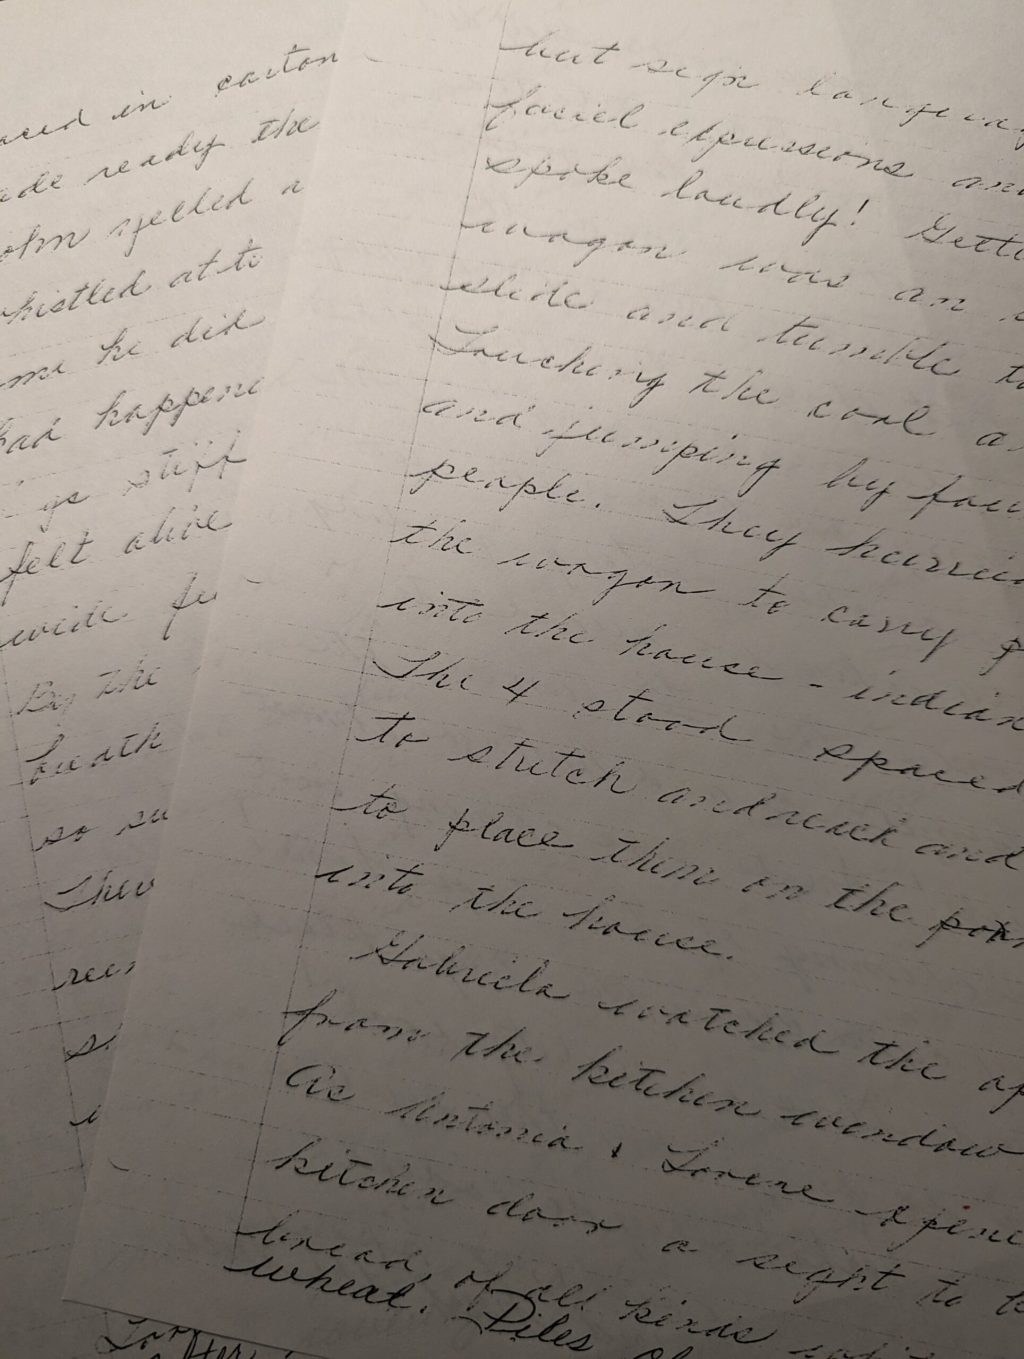 in carton
ready the
yelled a
whistled at
me he did
had happene
stiff
felt alive
wide
By the
breath
so su
but sign languag
facial expressions and
spoke loudly! Getti
wagon was an
slide and tumble to
Touching the coal a
and jumping by four
people. They hurried
the wagon to carry
into the house - indian
The 4 stood spaced
to stretch and reach and
to place them on the
into the house.
Gabriela watched the
from the kitchen window
As Antonia & Lorene
kitchen door a sight to
bread, of all kinds
wheat. Piles